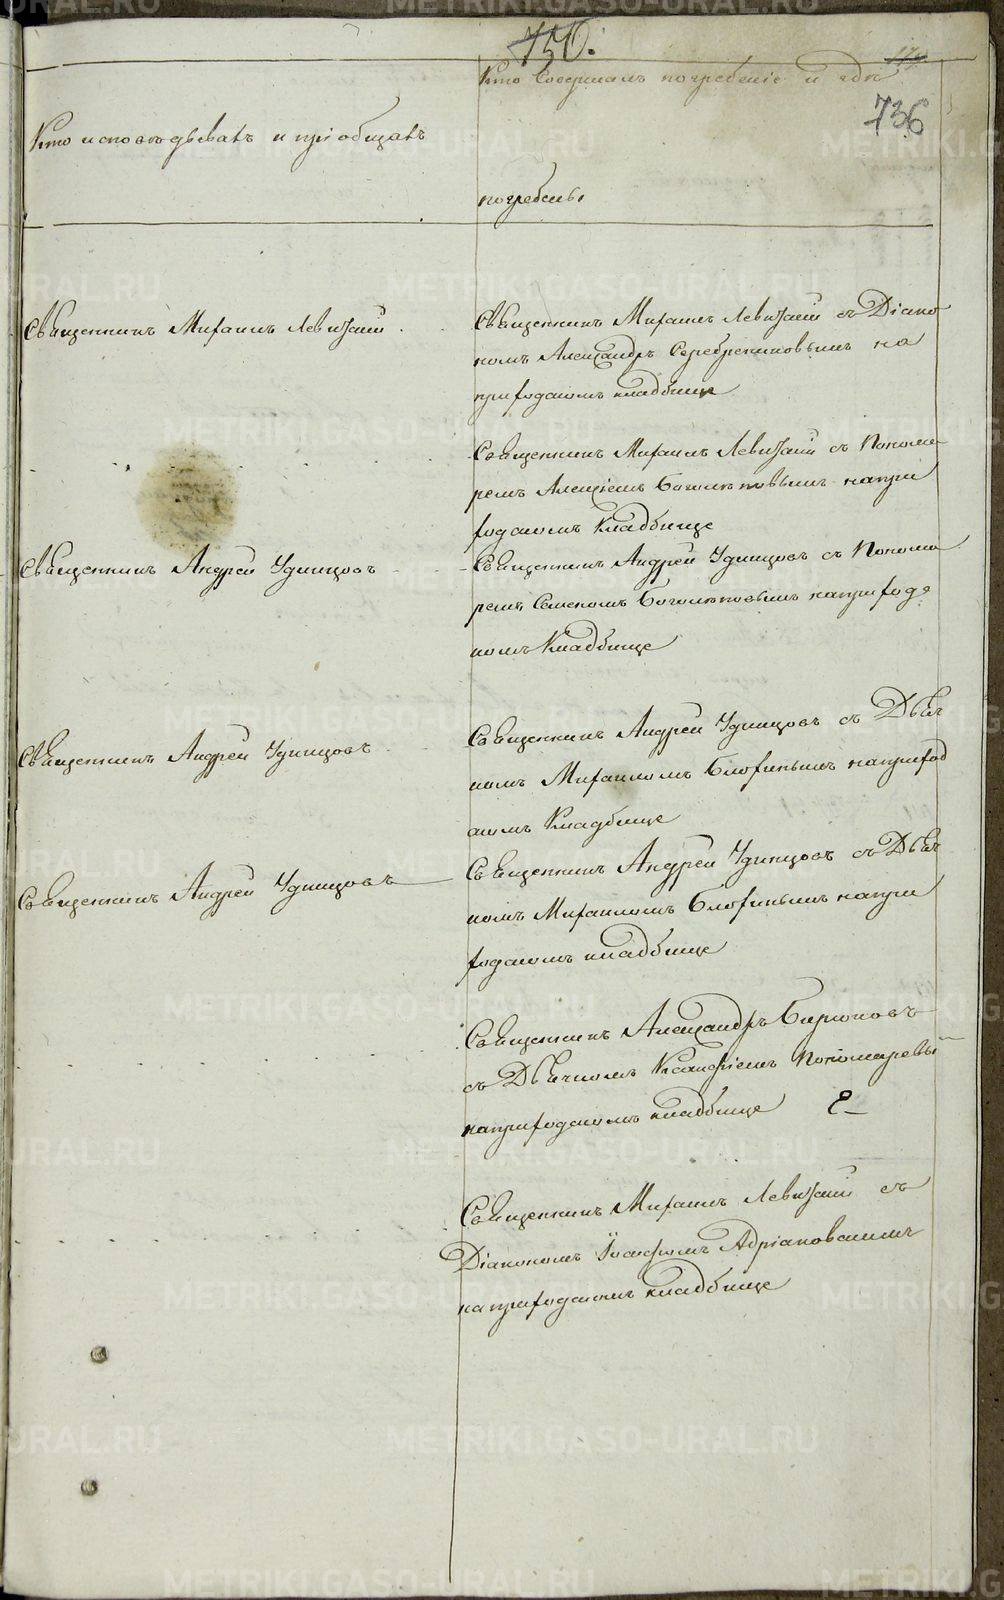 750.
174
736
Кто исповѣдывалъ и пріобщалъ
Кто совершалъ погребеніе и гдѣ
погребены
Священникъ Михаилъ Левицкій
Священникъ Михаилъ Левицкій съ Діако
номъ Александръ Серебрениковымъ на
приходскомъ кладбище
Священникъ Михаилъ Левицкій съ Понома
ремъ Алексіемъ Боголеповымъ на при
ходскомъ Кладбище
Священникъ Андрей Удинцовъ
Священникъ Андрей Удинцовъ съ Понома
ремъ Семеномъ Боголеповымъ на приходс
комъ Кладбище
Священникъ Андрей Удинцовъ
Священникъ Андрей Удинцовъ съ Дьяч
комъ Михаиломъ Блохинымъ на приход
скомъ Кладбище
Священникъ Андрей Удинцовъ
Священникъ Андрей Удинцовъ съ Дьяч
комъ Михаиломъ Блохинымъ на при
ходскомъ кладбище
Священникъ Александръ Бирюковъ
съ Дьячкомъ Ксанфіемъ Пономаревы
на приходскомъ кладбище
Священникъ Михаилъ Левицкій съ
Діакономъ Іоасафомъ Адріановскимъ
на приходскомъ кладбище
METRIKI.GASO-URAL.RU